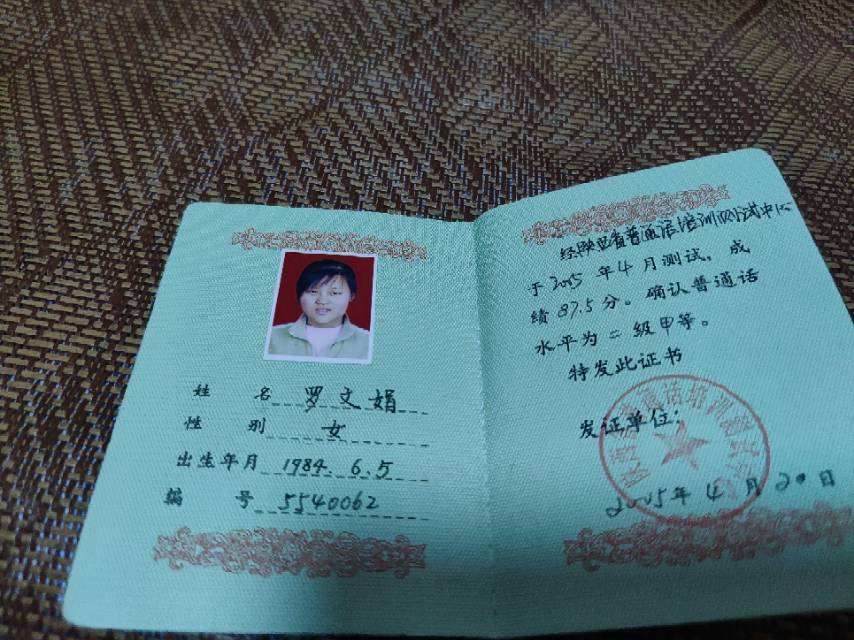 姓 名 罗文娟
性 别 女
出生年月 1984.6.5
编 号 5540062
经陕西省普通话培训测试中心
于2005年4月测试,成
绩87.5分。确认普通话
水平为二级甲等。
特发此证书
发证单位:
2005年4月20日